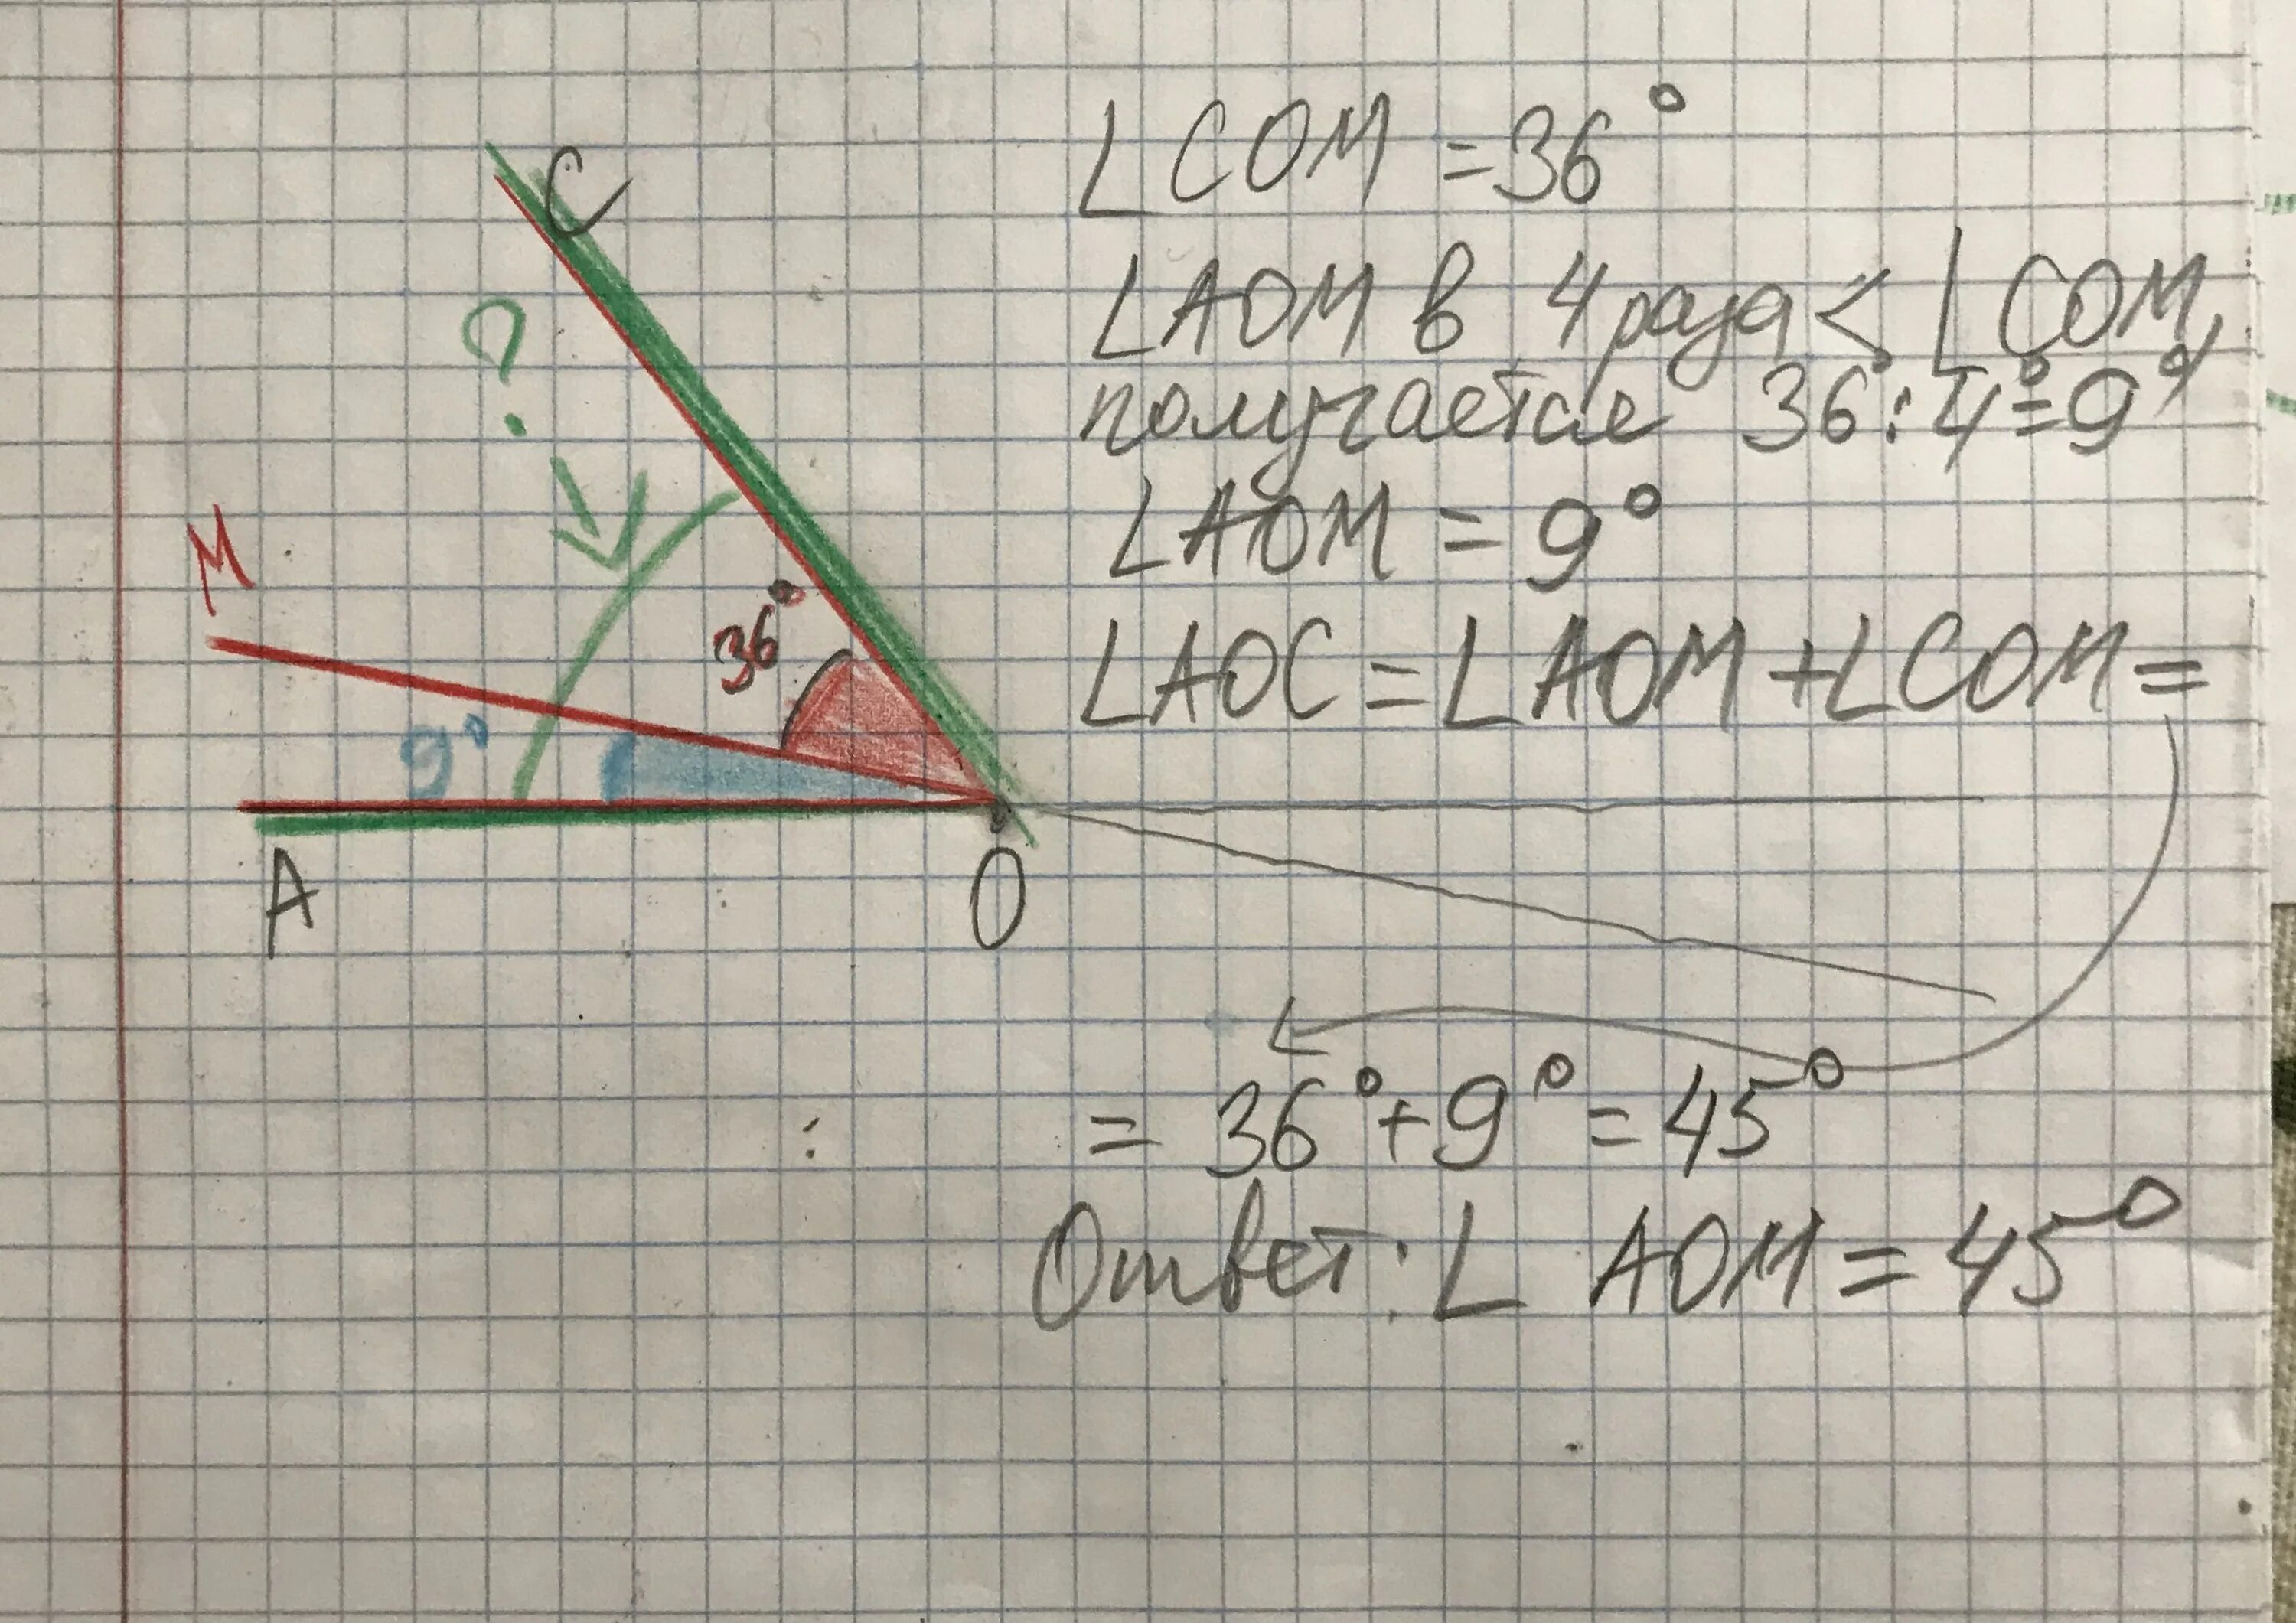 C
?
M
36°
9°
A
O
∠COM = 36°
∠AOM в 4 раза < ∠COM,
получается 36° : 4° = 9°
∠AOM = 9°
∠AOC = ∠AOM + ∠COM =
= 36° + 9° = 45°
Ответ: ∠ AOM = 45°